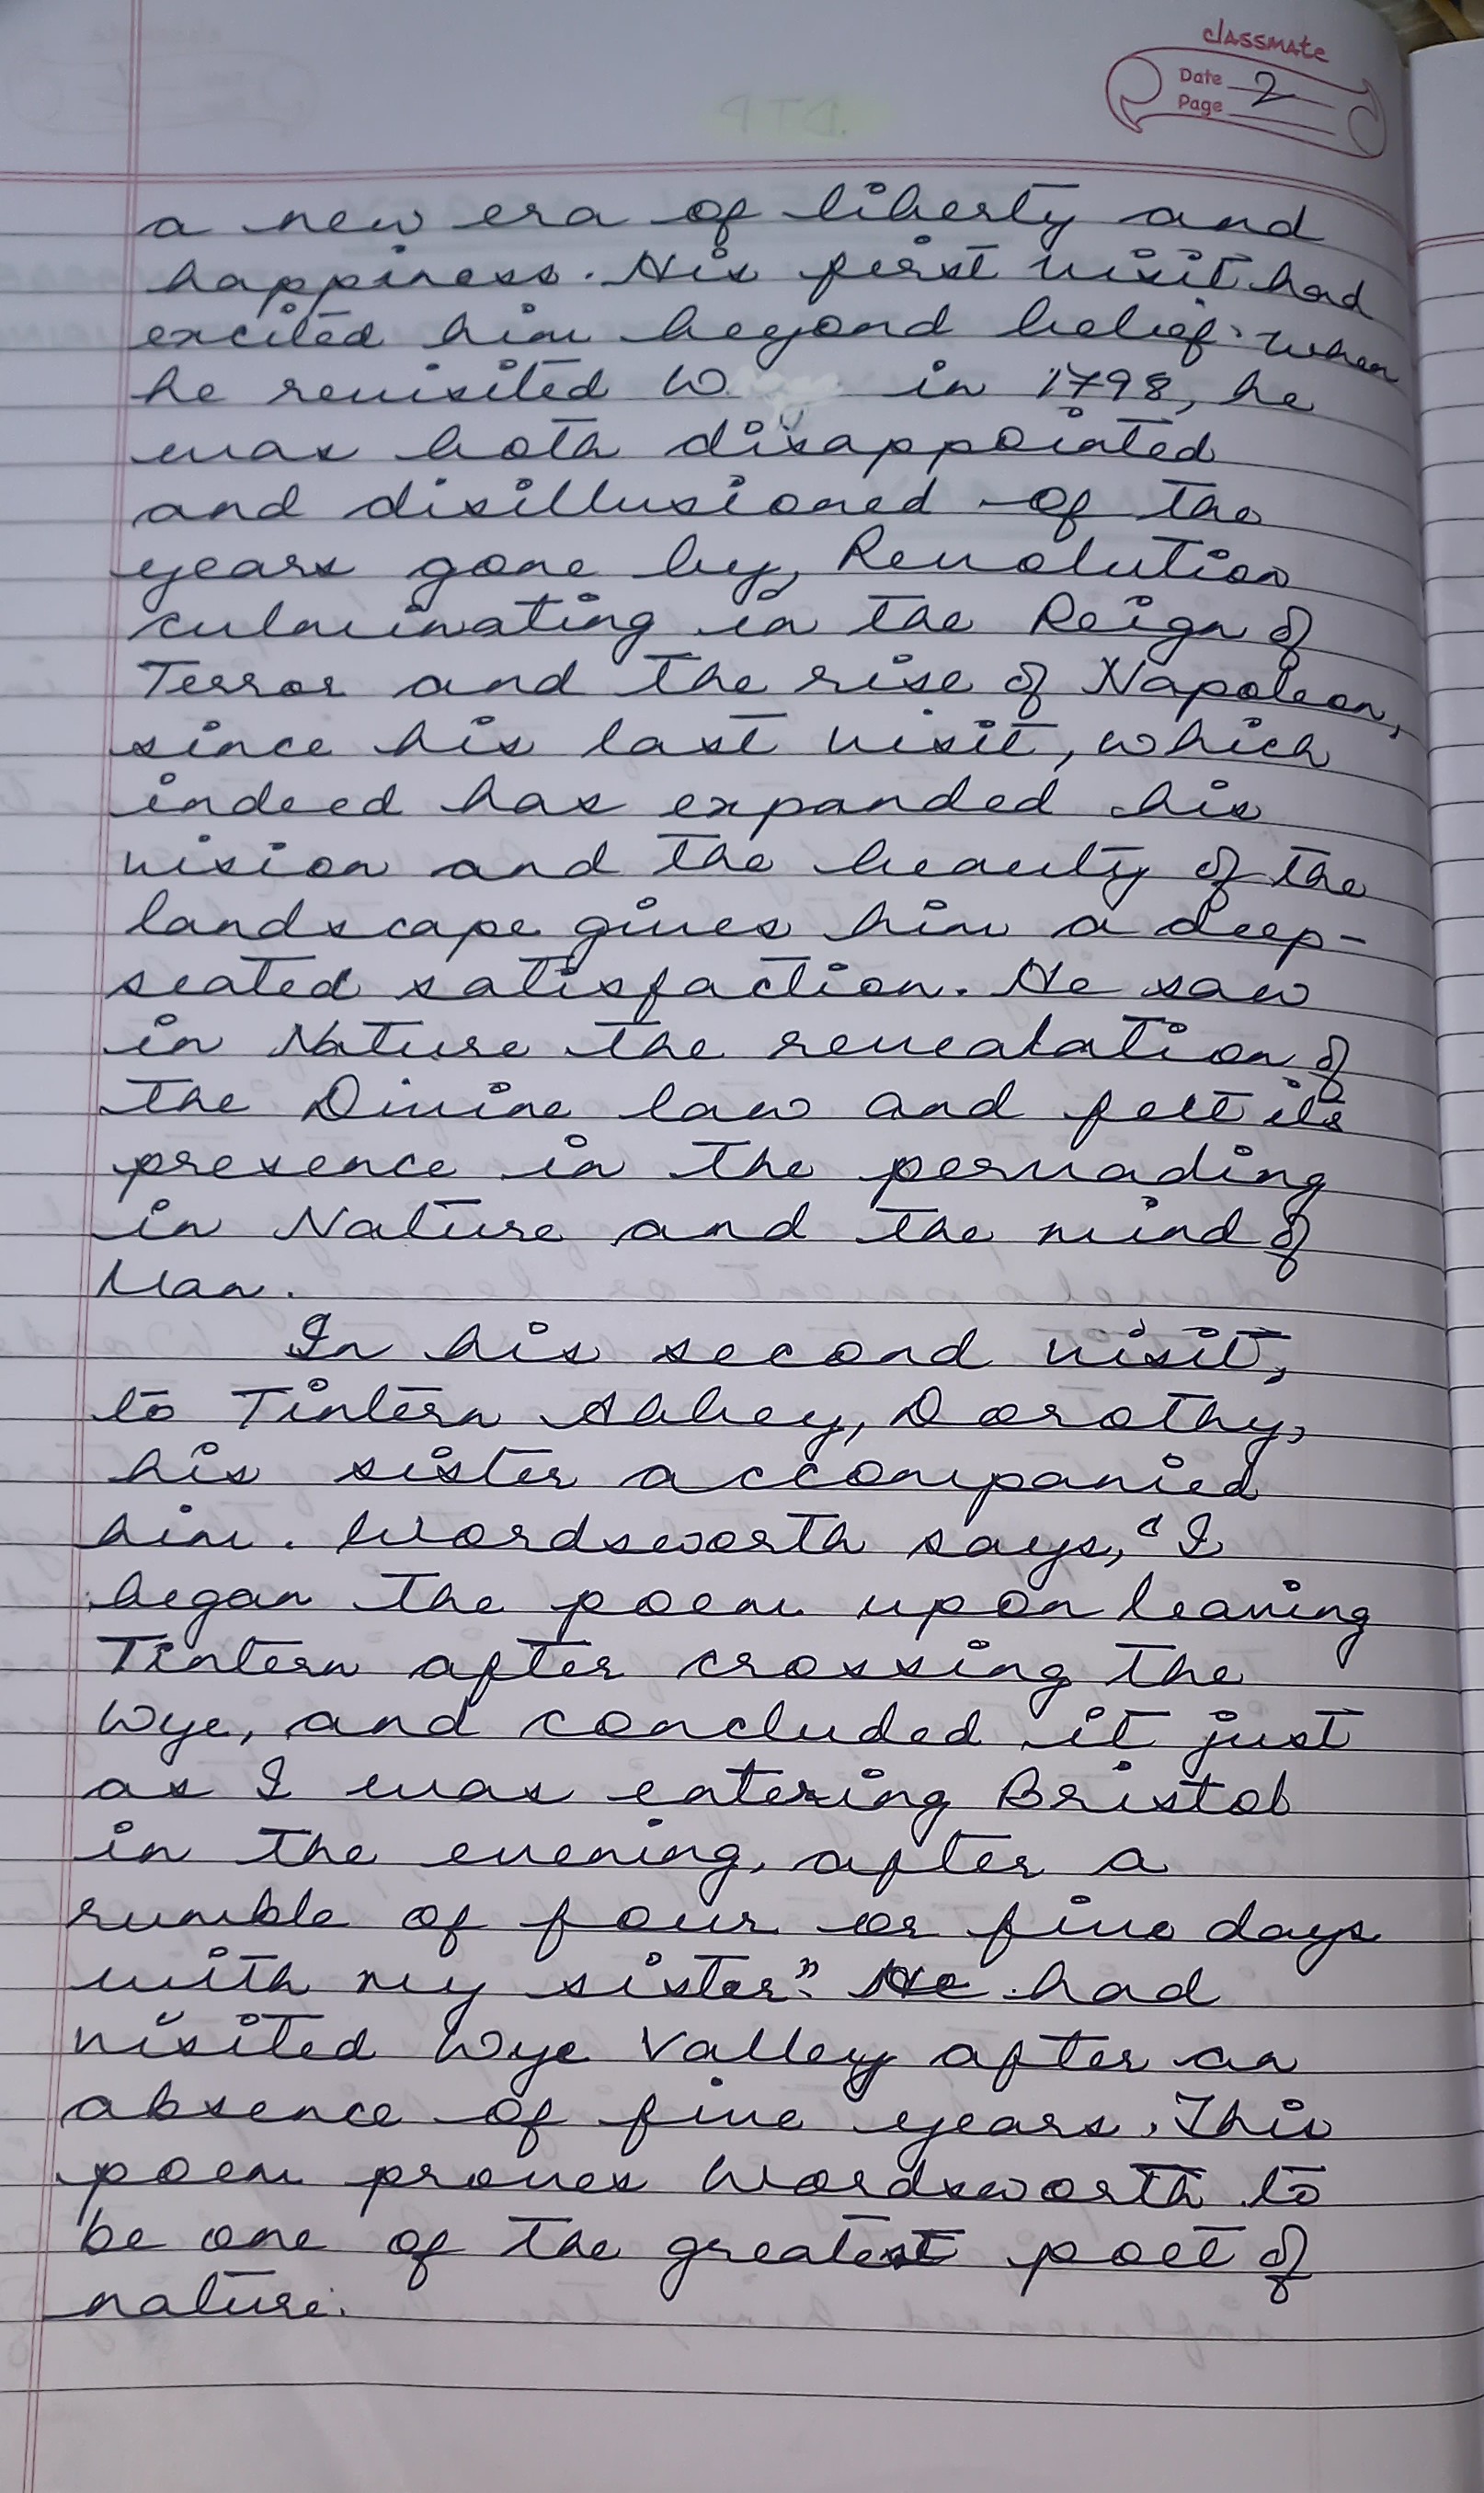 classmate
Date 2
Page
a new era of liberty and
happiness. His first visit had
excited him beyond belief. When
he revisited W in 1798, he
was both disappointed
and disillusioned of the
years gone by, Revolution
culminating in the Reign of
Terror and the rise of Napoleon,
since his last visit, which
indeed has expanded his
vision and the beauty of the
landscape gives him a deep-
seated satisfaction. He saw
in Nature the revealation of
the Divine law and felt its
presence in the pervading
in Nature and the mind of
Man.
In his second visit,
to Tintern Abbey, Dorothy,
his sister accompanied
him. Wordsworth says, "I
began the poem upon leaving
Tintern after crossing the
Wye, and concluded it just
as I was entering Bristol
in the evening, after a
rumble of four or five days
with my sister". He had
visited Wye Valley after an
absence of five years. This
poem proves Wordsworth to
be one of the greatest poet of
nature.